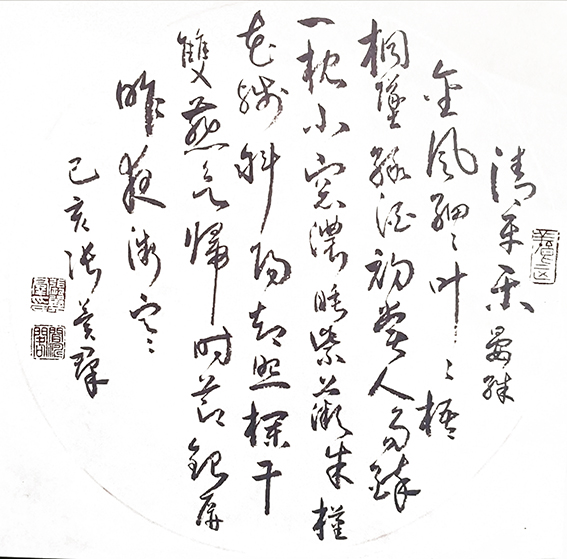 清平乐 晏殊
金风细〻叶〻梧
桐墜绿酒初尝人易醉
一枕小窓濃睡紫薇朱槿
花残斜阳却照栏干
雙燕欲归时节银屏
昨夜微寒
己亥张